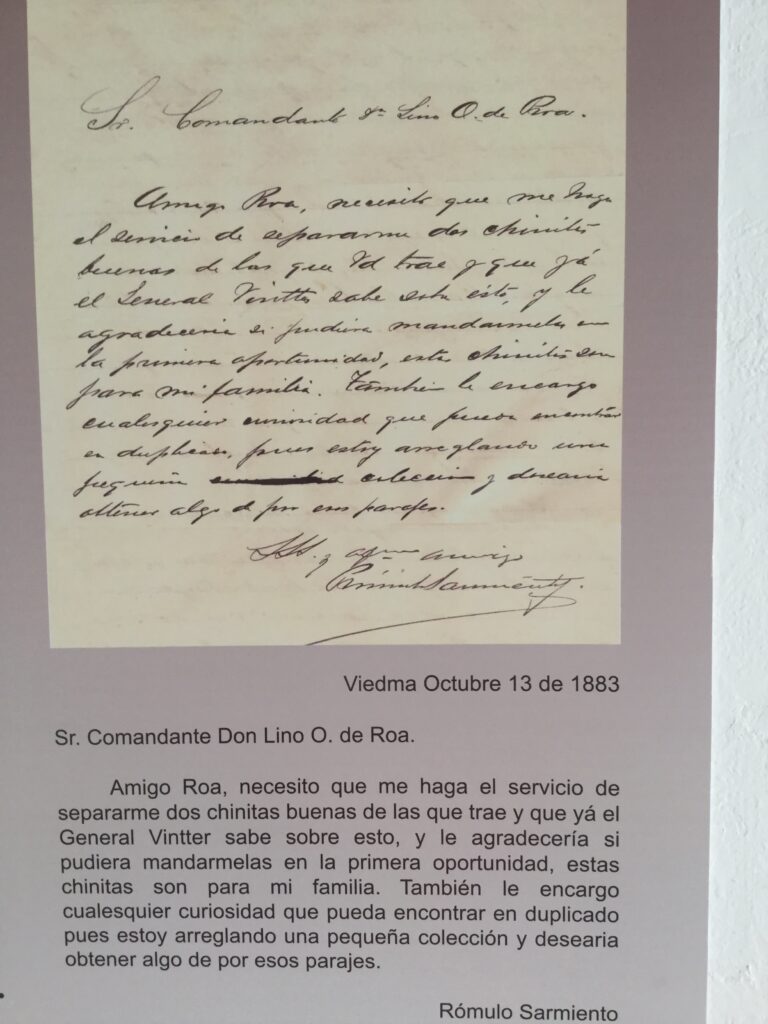 Sr. Comandante Dn Lino O. de Roa.
Amigo Roa, necesito que me haga
el servicio de separarme dos chinitas
buenas de las que Vd trae y que yá
el General Vintter sabe sobre esto, y le
agradeceria si pudiera mandarmelas en
la primera oportunidad, estas chinitas son
para mi familia. Tambien le encargo
cualesquier curiosidad que pueda encontrar
en duplicado, pues estoy arreglando una
pequeña coleccion y desearia
obtener algo d por esos parajes.
SS. y afmo amigo
Rómulo Sarmiento
Viedma Octubre 13 de 1883
Sr. Comandante Don Lino O. de Roa.
Amigo Roa, necesito que me haga el servicio de
separarme dos chinitas buenas de las que trae y que yá el
General Vintter sabe sobre esto, y le agradecería si
pudiera mandarmelas en la primera oportunidad, estas
chinitas son para mi familia. También le encargo
cualesquier curiosidad que pueda encontrar en duplicado
pues estoy arreglando una pequeña colección y desearia
obtener algo de por esos parajes.
Rómulo Sarmiento